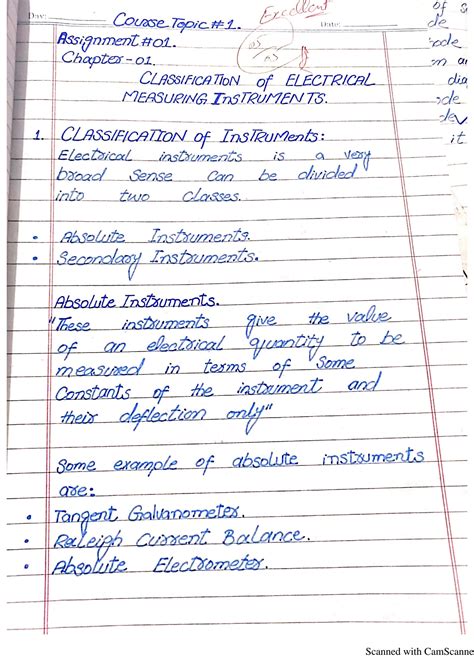 Day: Course Topic #1. Excellent Date:
Assignment #01.
Chapter-01.
CLASSIFICATION of ELECTRICAL
MEASURING INSTRUMENTS.
1. CLASSIFICATION of InSTRUMents:
Electrical instruments is a very
broad Sense Can be divided
into two Classes.
• Absolute Instruments.
• Secondary Instruments.
Absolute Instruments.
"These instruments give the value
of an electrical quantity to be
measured in terms of Some
Constants of the instrument and
their deflection only"
Some example of absolute instruments
are:
• Tangent Galvanometer.
• Raleigh Current Balance.
• Absolute Electrometer.
of a
de
dia
dev
it
Scanned with CamScanne